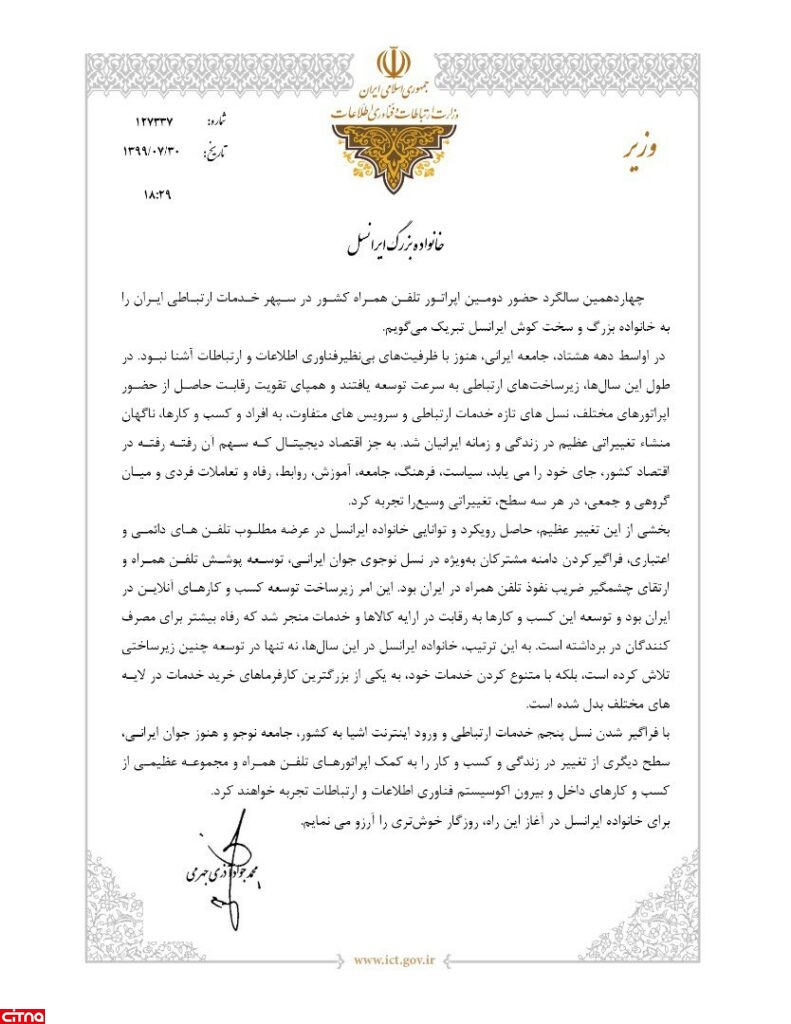 جمهوری اسلامی ایران
وزارت ارتباطات و فناوری اطلاعات
وزیر
شماره: ۱۲۷۳۳۷
تاریخ: ۱۳۹۹/۰۷/۳۰
۱۸:۲۹
خانواده بزرگ ایرانسل
چهاردهمین سالگرد حضور دومین اپراتور تلفن همراه کشور در سپهر خدمات ارتباطی ایران را
به خانواده بزرگ و سخت کوش ایرانسل تبریک می‌گویم.
در اواسط دهه هشتاد، جامعه ایرانی، هنوز با ظرفیت‌های بی‌نظیرفناوری اطلاعات و ارتباطات آشنا نبود. در
طول این سال‌ها، زیرساخت‌های ارتباطی به سرعت توسعه یافتند و همپای تقویت رقابت حاصل از حضور
اپراتورهای مختلف، نسل های تازه خدمات ارتباطی و سرویس های متفاوت، به افراد و کسب و کارها، ناگهان
منشاء تغییراتی عظیم در زندگی و زمانه ایرانیان شد. به جز اقتصاد دیجیتال که سهم آن رفته رفته در
اقتصاد کشور، جای خود را می یابد، سیاست، فرهنگ، جامعه، آموزش، روابط، رفاه و تعاملات فردی و میان
گروهی و جمعی، در هر سه سطح، تغییراتی وسیع‌را تجربه کرد.
بخشی از این تغییر عظیم، حاصل رویکرد و توانایی خانواده ایرانسل در عرضه مطلوب تلفن های دائمی و
اعتباری، فراگیرکردن دامنه مشترکان به‌ویژه در نسل نوجوی جوان ایرانی، توسعه پوشش تلفن همراه و
ارتقای چشمگیر ضریب نفوذ تلفن همراه در ایران بود. این امر زیرساخت توسعه کسب و کارهای آنلاین در
ایران بود و توسعه این کسب و کارها به رقابت در ارایه کالاها و خدمات منجر شد که رفاه بیشتر برای مصرف
کنندگان در برداشته است. به این ترتیب، خانواده ایرانسل در این سال‌ها، نه تنها در توسعه چنین زیرساختی
تلاش کرده است، بلکه با متنوع کردن خدمات خود، به یکی از بزرگترین کارفرماهای خرید خدمات در لایه
های مختلف بدل شده است.
با فراگیر شدن نسل پنجم خدمات ارتباطی و ورود اینترنت اشیا به کشور، جامعه نوجو و هنوز جوان ایرانی،
سطح دیگری از تغییر در زندگی و کسب و کار را به کمک اپراتورهای تلفن همراه و مجموعه عظیمی از
کسب و کارهای داخل و بیرون اکوسیستم فناوری اطلاعات و ارتباطات تجربه خواهند کرد.
برای خانواده ایرانسل در آغاز این راه، روزگار خوش‌تری را آرزو می نمایم.
محمدجواد آذری جهرمی
www.ict.gov.ir
citna